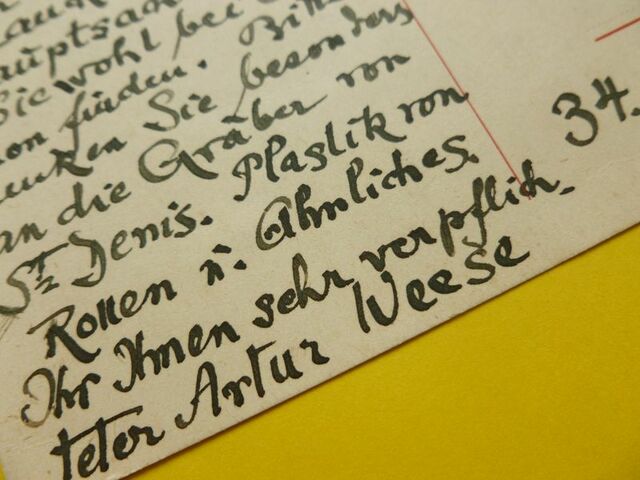 auptsa
Sie wohl bei
on finden. Bitt
enken Sie besonders
an die Gräber von
St Denis. Plastik von
Rouen u. Ähnliches.
Ihr Ihnen sehr verpflich-
teter Artur Weese
34.